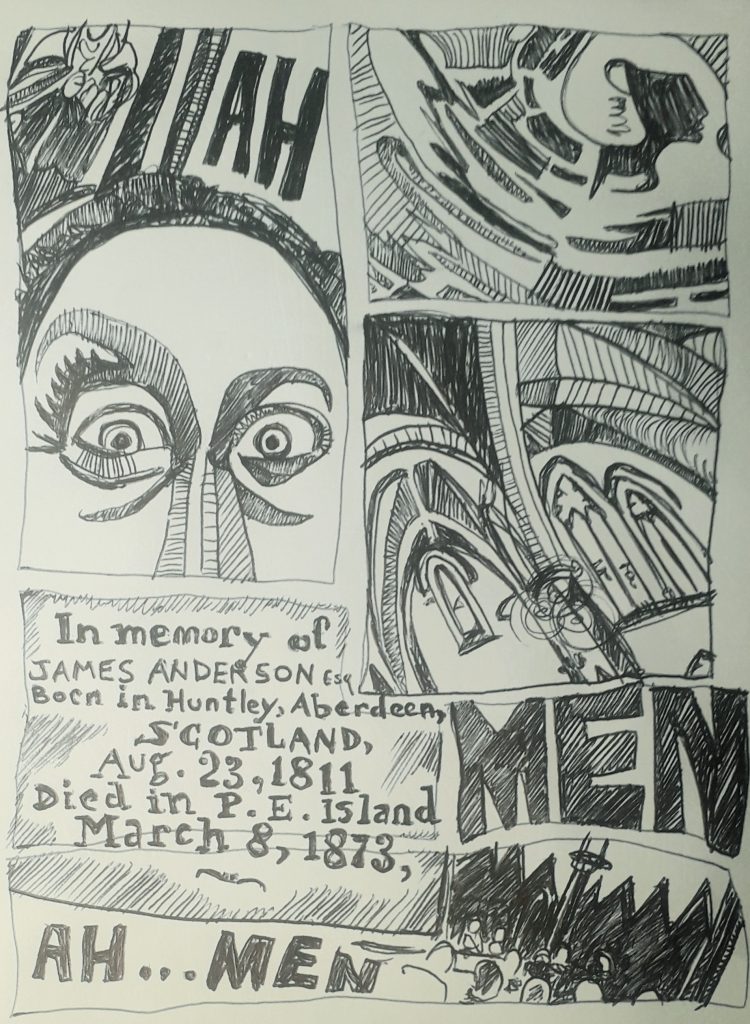 AH
In memory of
JAMES ANDERSON Esq
Born in Huntley, Aberdeen,
SCOTLAND,
Aug. 23, 1811
Died in P. E. Island
March 8, 1873,
MEN
AH...MEN